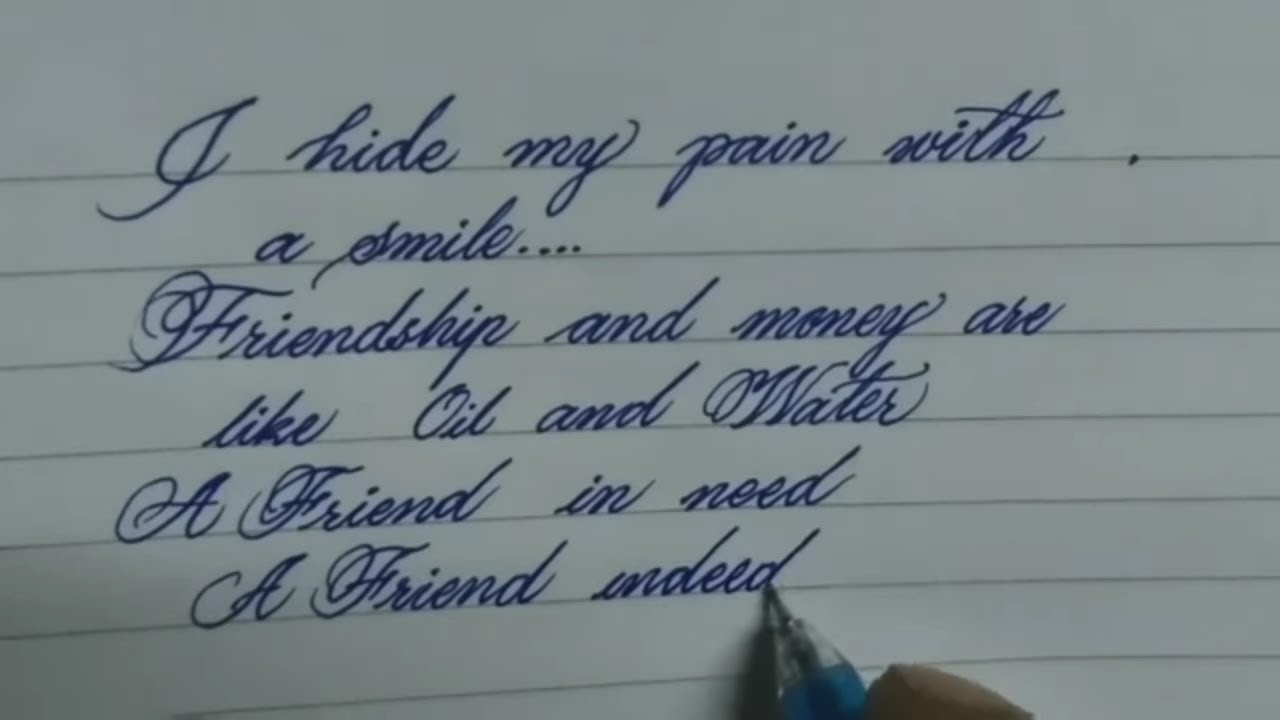 I hide my pain with .
a smile....
Friendship and money are
like Oil and Water
A Friend in need
A Friend indeed